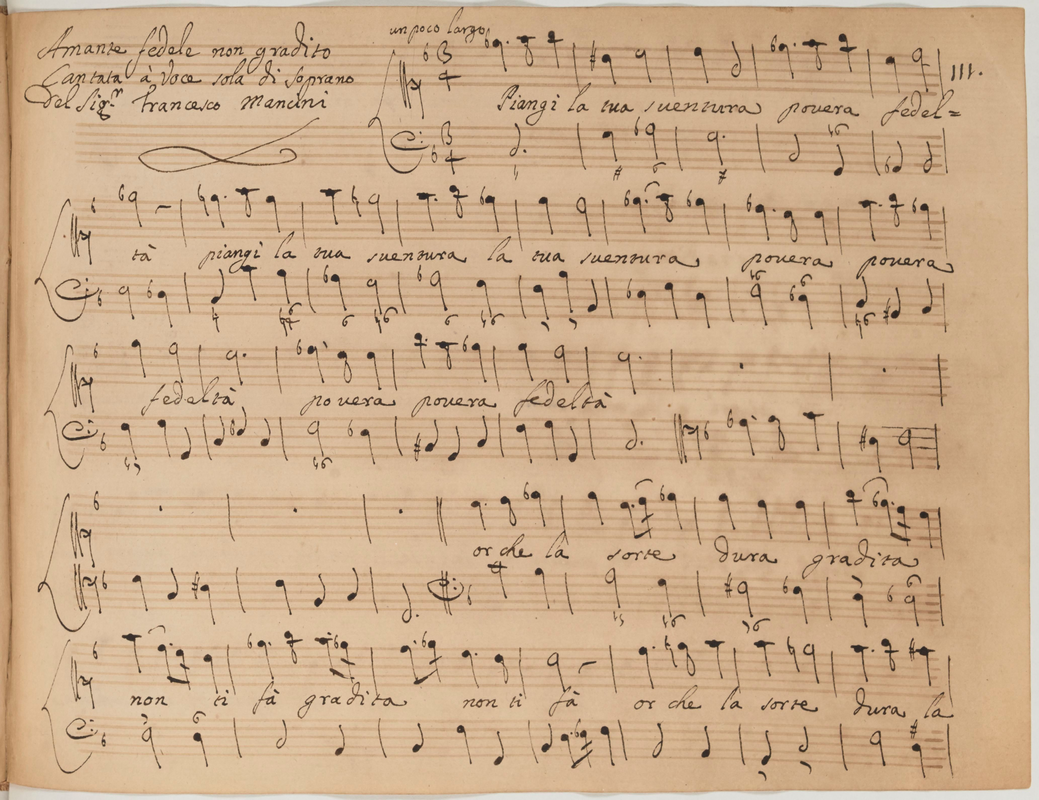 un poco largo
Amante fedele non gradito
Cantata à Voce sola di Soprano
del Sig.r Francesco Mancini
III.
Piangi la tua suentura povera fedel=
tà piangi la tua suentura la tua suentura povera povera
fedeltà povera povera fedeltà
or che la sorte dura gradita
non ti fà gradita non ti fà or che la sorte dura la